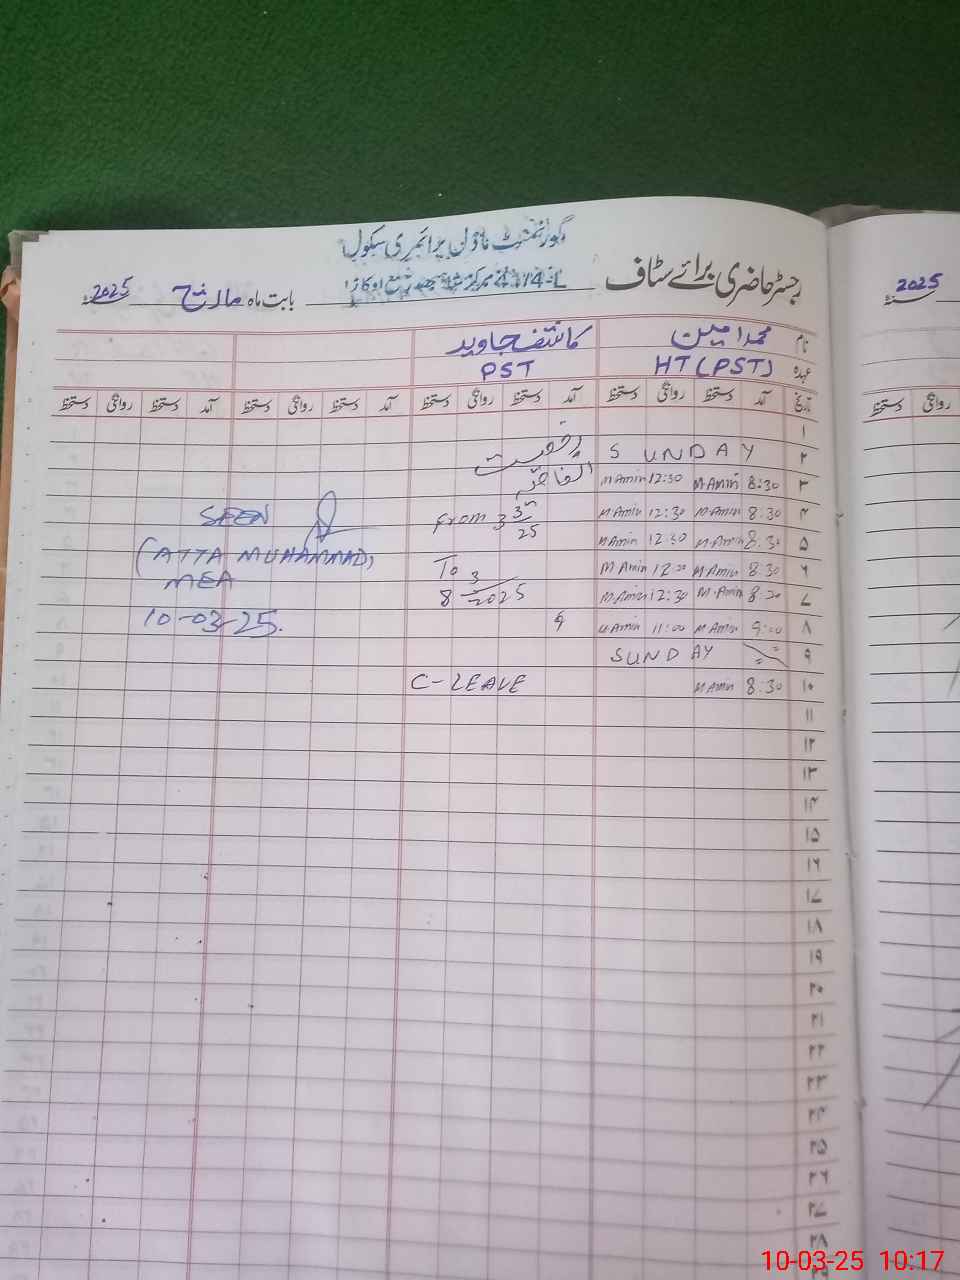 گورنمنٹ ماڈل پرائمری سکول
4/4-L مرکز ضلع اوکاڑا
رجسٹر حاضری برائے سٹاف
بابت ماہ مارچ 2025
2025
نام محمد امین کاشف جاوید
عہدہ HT (PST) PST
تاریخ آمد دستخط روانگی دستخط آمد دستخط روانگی دستخط آمد دستخط روانگی دستخط آمد دستخط روانگی دستخط
روانگی دستخط
۱
۲ SUNDAY رخصت
۳ 8:30 M Amin 12:30 M Amin اتفاقیہ
۴ 8:30 M Amin 12:30 M Amin From 3 3 25
۵ 8:30 M Amin 12:30 M Amin
۶ 8:30 M Amin M Amin To
۷ M Amin 12:30 M Amin 8 3 2025
۸ 9:00 M Amin 11:00 M Amin 9
۹ SUNDAY
۱۰ 8:30 M Amin C-LEAVE
SEEN
(ATTA MUHAMMAD)
MEA
10-03-25.
۱۱
۱۲
۱۳
۱۴
۱۵
۱۶
۱۷
۱۸
۱۹
۲۰
۲۱
۲۲
۲۳
۲۴
۲۵
۲۶
۲۷
۲۸
10-03-25 10:17